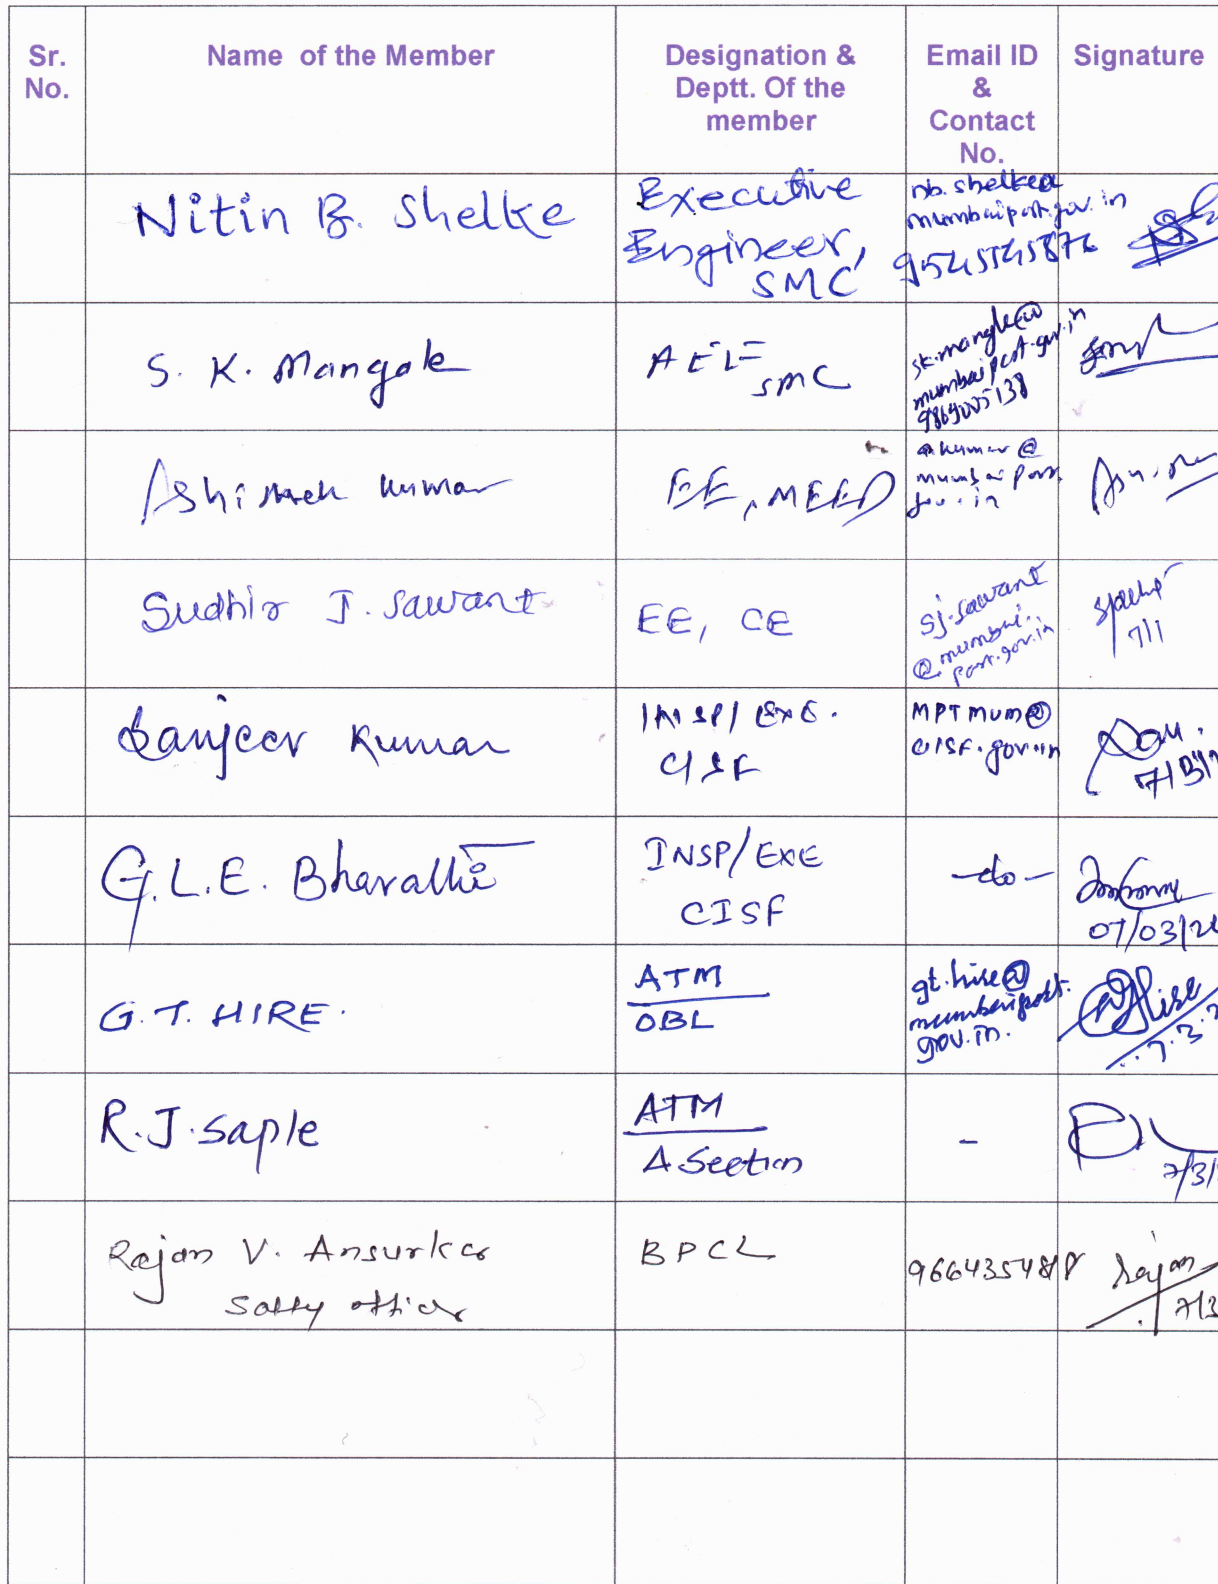 Sr. No.
Name of the Member
Designation & Deptt. Of the member
Email ID & Contact No.
Signature
Nitin B. Shelke
Executive
Engineer,
SMC
nb.shelke@
mumbaiport.gov.in
S. K. Mangale
SMC
sk.mangle@
mumbaiport.gov.in
Kumar
EE, MEED
kumar@
mumbai port
gov.in
Sudhir J. Sawant
EE, CE
sj.sawant
@mumbai.
port.gov.in
7/1
Sanjeev Kumar
INSP/ EXE.
CISF
MPTMUM@
CISF.gov.in
G.L.E. Bharathi
INSP/EXE
CISF
-do-
07/03/2
G.T. HIRE.
ATM
OBL
gt.hire@
mumbaiport.
gov.in.
7.3.
R.J. Saple
ATM
A Section
-
7/3/
Rajan V. Ansurkar
officer
BPCL
Rajan
7/3